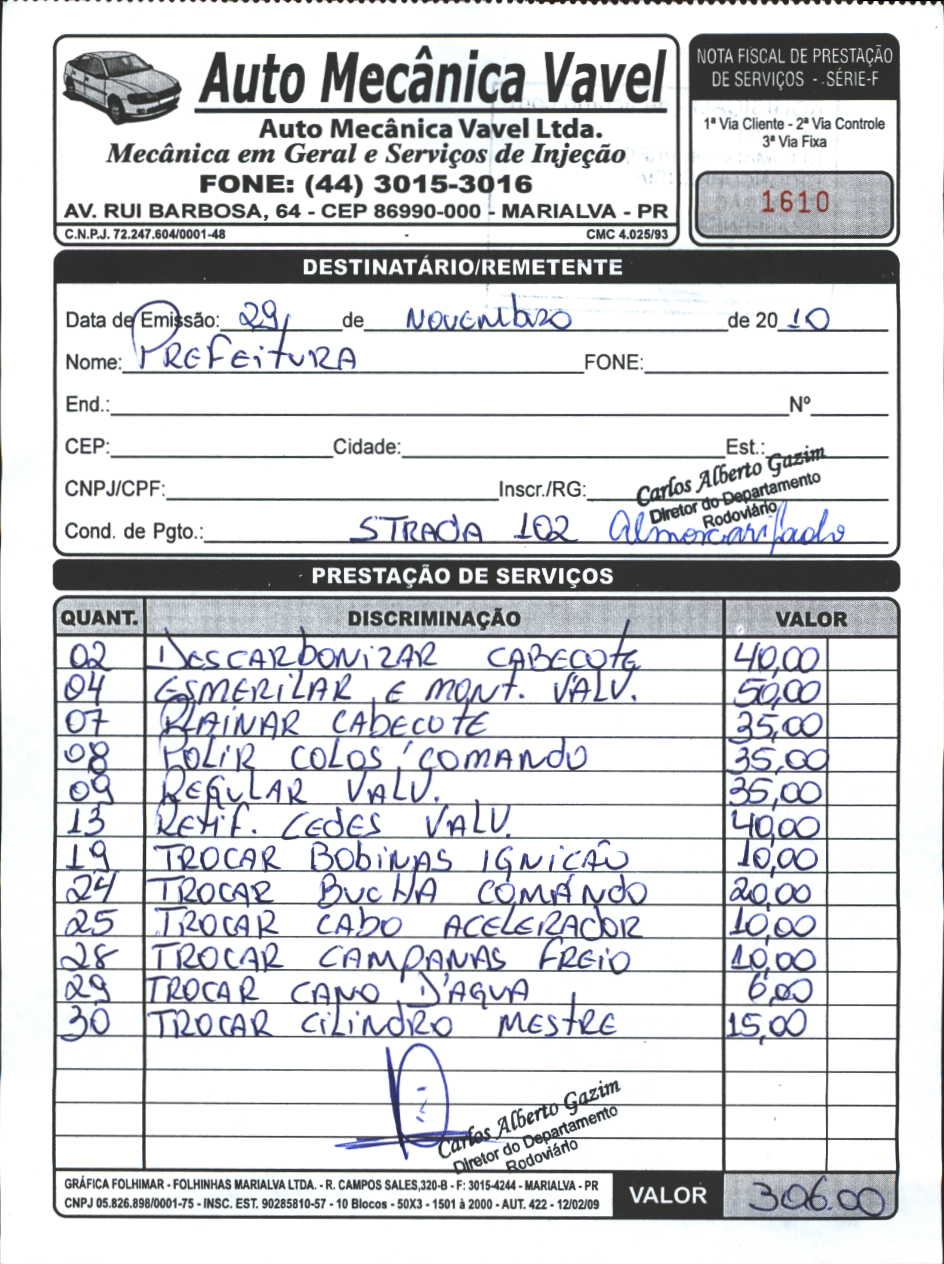 Auto Mecânica Vavel
Auto Mecânica Vavel Ltda.
Mecânica em Geral e Serviços de Injeção
FONE: (44) 3015-3016
AV. RUI BARBOSA, 64 - CEP 86990-000 - MARIALVA - PR
C.N.P.J. 72.247.604/0001-48 CMC 4.025/93
NOTA FISCAL DE PRESTAÇÃO
DE SERVIÇOS - SÉRIE-F
1ª Via Cliente - 2ª Via Controle
3ª Via Fixa
1610
DESTINATÁRIO/REMETENTE
Data de Emissão: 29 de NOVEMBRO de 20 10
Nome: PREFEITURA FONE:
End.: Nº
CEP: Cidade: Est.:
CNPJ/CPF: Inscr./RG:
Carlos Alberto Gazim
Diretor do Departamento
Rodoviário
Cond. de Pgto.: STRADA 102 Almoxarifado
PRESTAÇÃO DE SERVIÇOS
QUANT. DISCRIMINAÇÃO VALOR
02 DESCARBONIZAR CABECOTE 40,00
04 ESMERILAR E MONT. VALV. 50,00
07 PLAINAR CABECOTE 35,00
08 POLIR COLOS COMANDO 35,00
09 REGULAR VALV. 35,00
13 RETIF. CEDES VALV. 40,00
19 TROCAR BOBINAS IGNICÃO 10,00
24 TROCAR BUCHA COMANDO 20,00
25 TROCAR CABO ACELERADOR 10,00
28 TROCAR CAMPANAS FREIO 10,00
29 TROCAR CANO D'AGUA 6,00
30 TROCAR CILINDRO MESTRE 15,00
Carlos Alberto Gazim
Diretor do Departamento
Rodoviário
GRÁFICA FOLHIMAR - FOLHINHAS MARIALVA LTDA. - R. CAMPOS SALES,320-B - F: 3015-4244 - MARIALVA - PR
CNPJ 05.826.898/0001-75 - INSC. EST. 90285810-57 - 10 Blocos - 50X3 - 1501 à 2000 - AUT. 422 - 12/02/09
VALOR 306.00